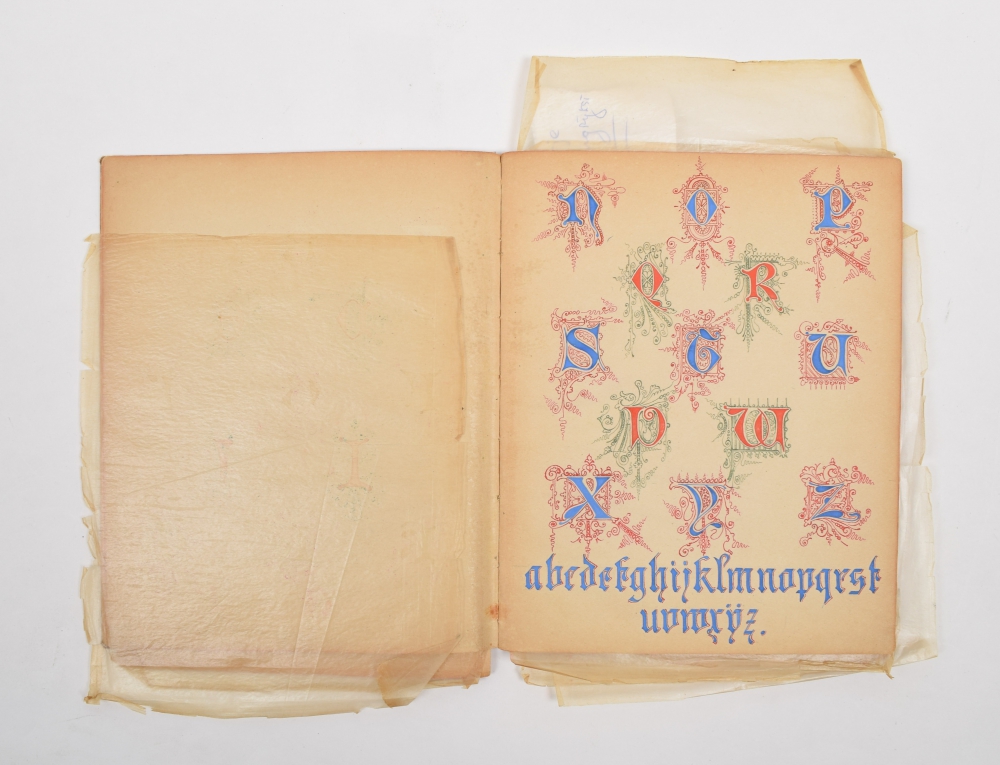 N O P
Q R
S T U
V W
X Y Z
abcdefghijklmnopqrst
uvwxÿz.